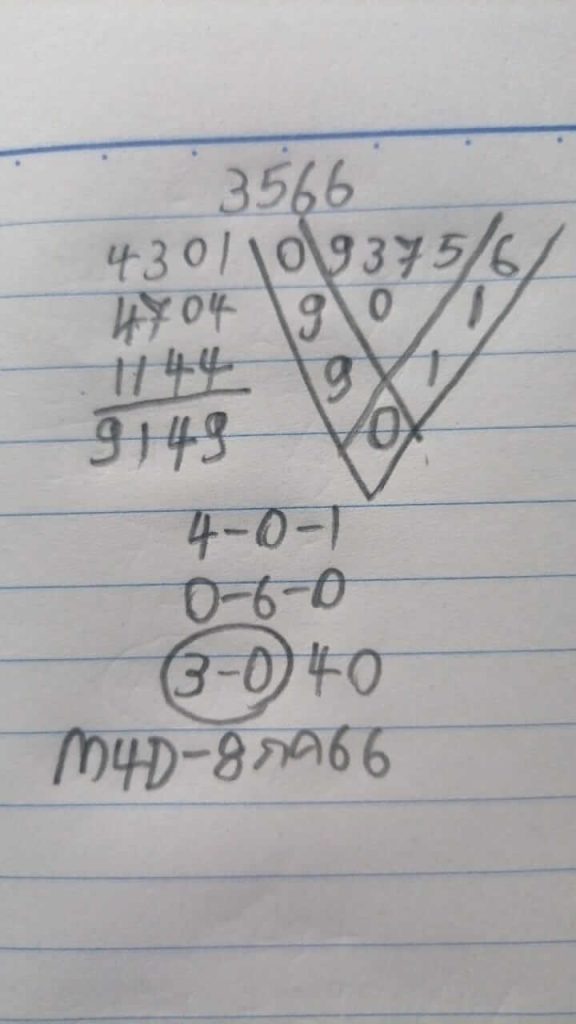 3566
4301 0 9375 6
4704 9 0 1
1144 9 1
9149 0
4-0-1
0-6-0
3-0 40
M4D-8ภค66